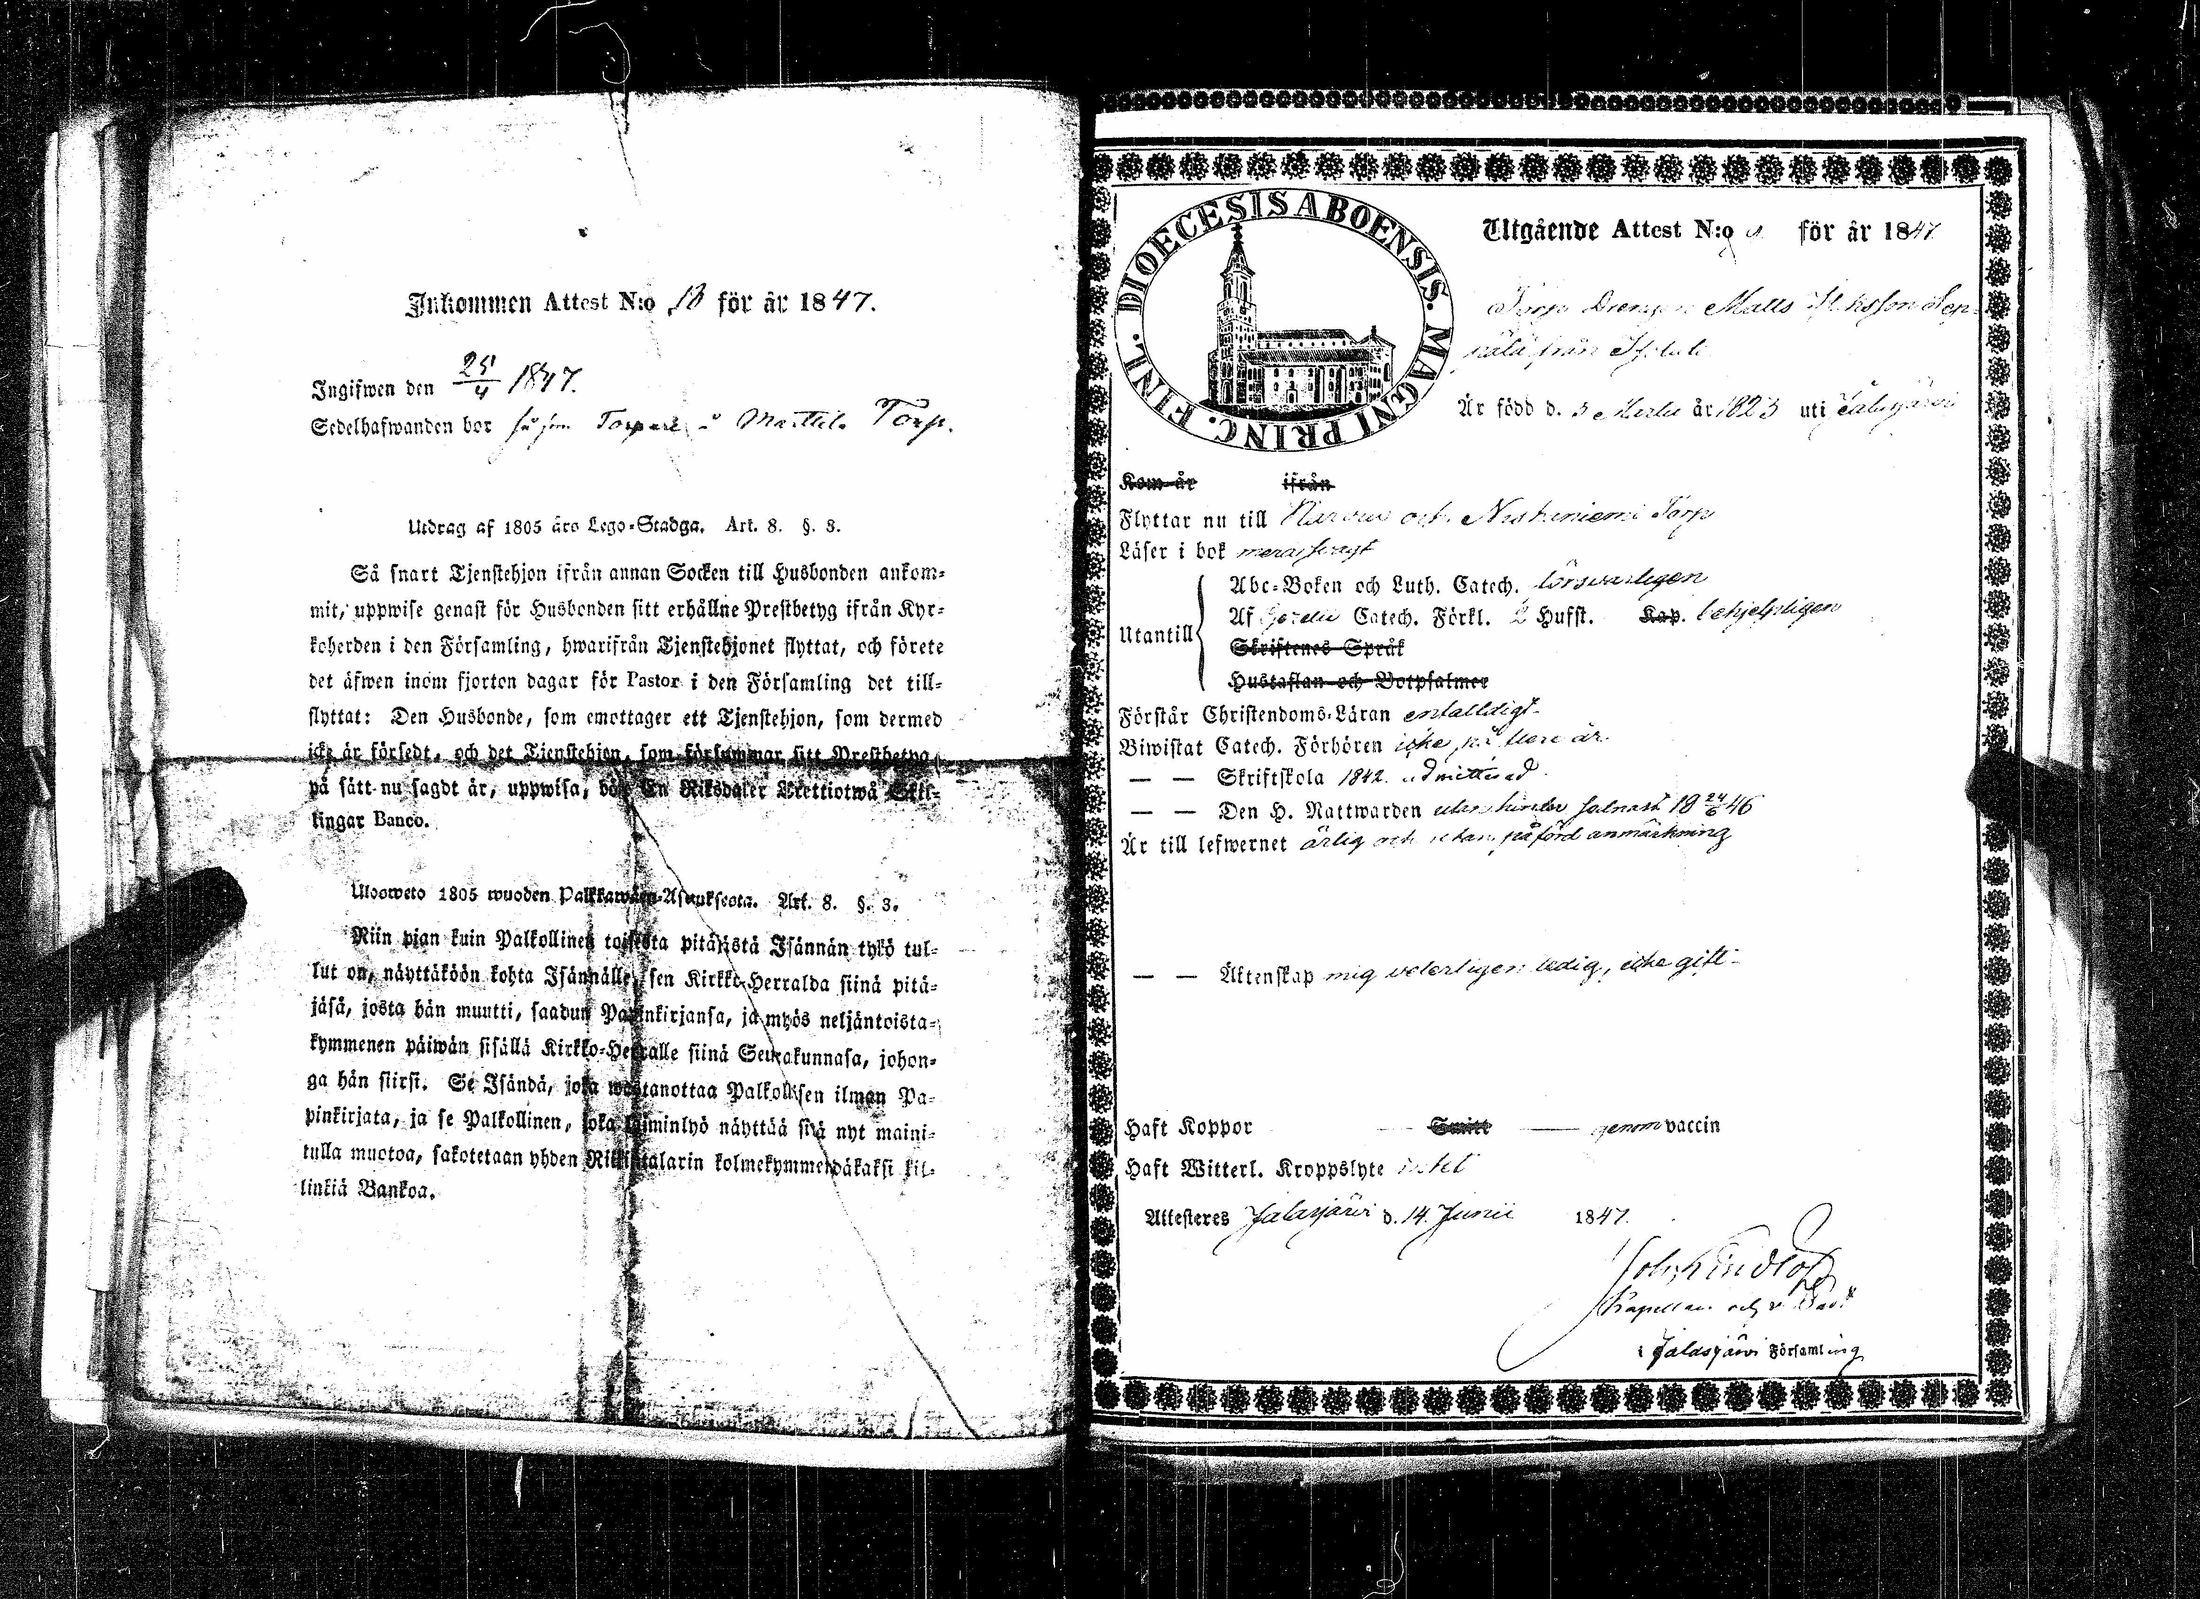 Inkommen Attest N:o 13 för år 1847.
Ingifwen den 25/4 1847.
Sedelhafwanden bor såsom Torpare å Marttila Torp.
Utdrag af 1805 års Lego-Stadga. Art. 8. §. 3.
Så snart Tjenstehjon ifrån annan Socken till Husbonden ankom-
mit, uppwise genast för Husbonden sitt erhållne Prestbetyg ifrån Kyr-
koherden i den Församling, hwarifrån Tjenstehjonet flyttat, och förete
det äfwen inom fjorton dagar för Pastor i den Församling det till-
flyttat: Den Husbonde, som emottager ett Tjenstehjon, som dermed
icke är försedt, och det Tjenstehjon, som försummar sitt Prestbetyg
på sätt nu sagdt är, uppwisa, böte En Riksdaler Trettiotwå Skil-
lingar Banco.
Ulosweto 1805 wuoden Palkkawäen-Asetuksesta. Art. 8. §. 3.
Niin pian kuin Palkollinen toisesta pitäjästä Isännän tykö tul-
lut on, näyttäköön kohta Isännälle sen Kirkko-Herralda siinä pitä-
jäsä, josta hän muutti, saadun Papinkirjansa, ja myös neljäntoista-
kymmenen päiwän sisällä Kirkko-Herralle siinä Seurakunnasa, johon-
ga hän siirsi. Se Isändä, joka wastanottaa Palkollisen ilman Pa-
pinkirjata, ja se Palkollinen, joka laiminlyö näyttää sitä nyt maini-
tulla muotoa, sakotetaan yhden Riikintalarin kolmekymmendäkaksi kil-
linkiä Bankoa.
DIOECESIS ABOENSIS. MAGNI PRINC. FINL.
Utgående Attest N:o för år 1847
Torp Drengen Matts Sep-
pälä från
Är född d. 3 år 1823 uti Jalasjärvi
Kom år ifrån
Flyttar nu till och Niskaniemi Torp
Läser i bok
Abc-Boken och Luth. Catech. försvarligen
Utantill Af Catech. Förkl. 2 Hufst. Kap. behjelpligen
Skriftenes Språk
Hustaflan och Botpsalmer
Förstår Christendoms-Läran enfalldigt
Biwistat Catech. Förhören icke på flere år
— — Skriftskola 1842. admitterad
— — Den H. Nattwarden utan hinder sednast 18 24/6 46
Är till lefwernet ärlig och utan påförd anmärkning
— — Äktenskap mig veterligen ledig, icke gift
Haft Koppor Smitt genom vaccin
Haft Witterl. Kroppslyte intet
Attesteres Jalasjärvi d. 14. Junii 1847.
Kapellan och v. Past.
i Jalasjärvi Församling